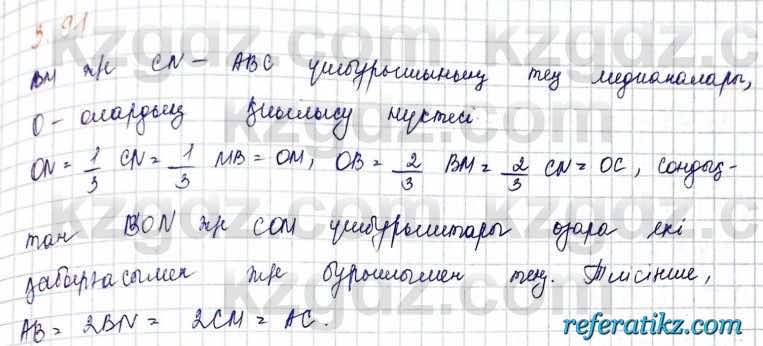 3.91
BM және CN – ABC үшбұрышының тең медианалары,
O – олардың қиылысу нүктесі.
ON = 1/3 CN = 1/3 MB = OM, OB = 2/3 BM = 2/3 CN = OC, сондық-
тан BON және COM үшбұрыштары өзара екі
қабырғасымен және бұрышымен тең. Тиісінше,
AB = 2BN = 2CM = AC.
kzgdz.com
referatikz.com